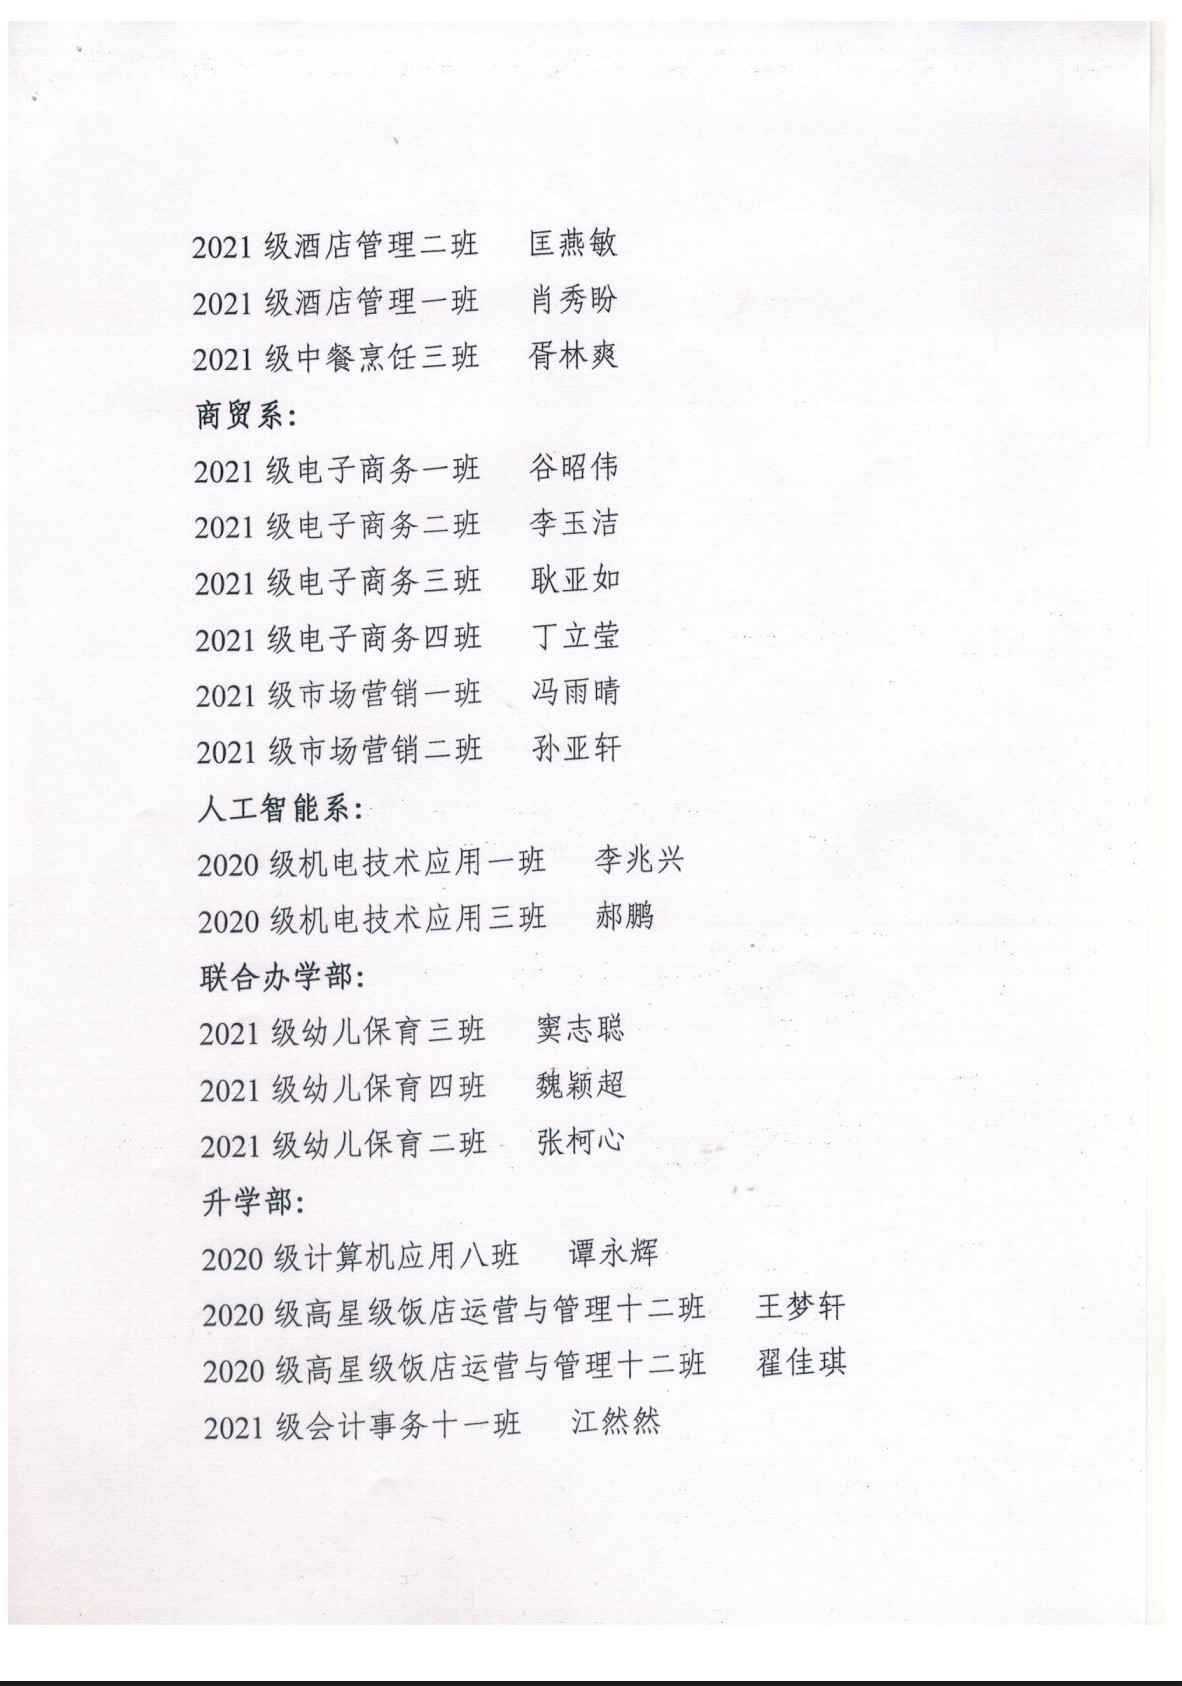 2021 级酒店管理二班 匡燕敏
2021 级酒店管理一班 肖秀盼
2021 级中餐烹饪三班 胥林爽
商贸系:
2021 级电子商务一班 谷昭伟
2021 级电子商务二班 李玉洁
2021 级电子商务三班 耿亚如
2021 级电子商务四班 丁立莹
2021 级市场营销一班 冯雨晴
2021 级市场营销二班 孙亚轩
人工智能系:
2020 级机电技术应用一班 李兆兴
2020 级机电技术应用三班 郝鹏
联合办学部:
2021 级幼儿保育三班 窦志聪
2021 级幼儿保育四班 魏颖超
2021 级幼儿保育二班 张柯心
升学部:
2020 级计算机应用八班 谭永辉
2020 级高星级饭店运营与管理十二班 王梦轩
2020 级高星级饭店运营与管理十二班 翟佳琪
2021 级会计事务十一班 江然然